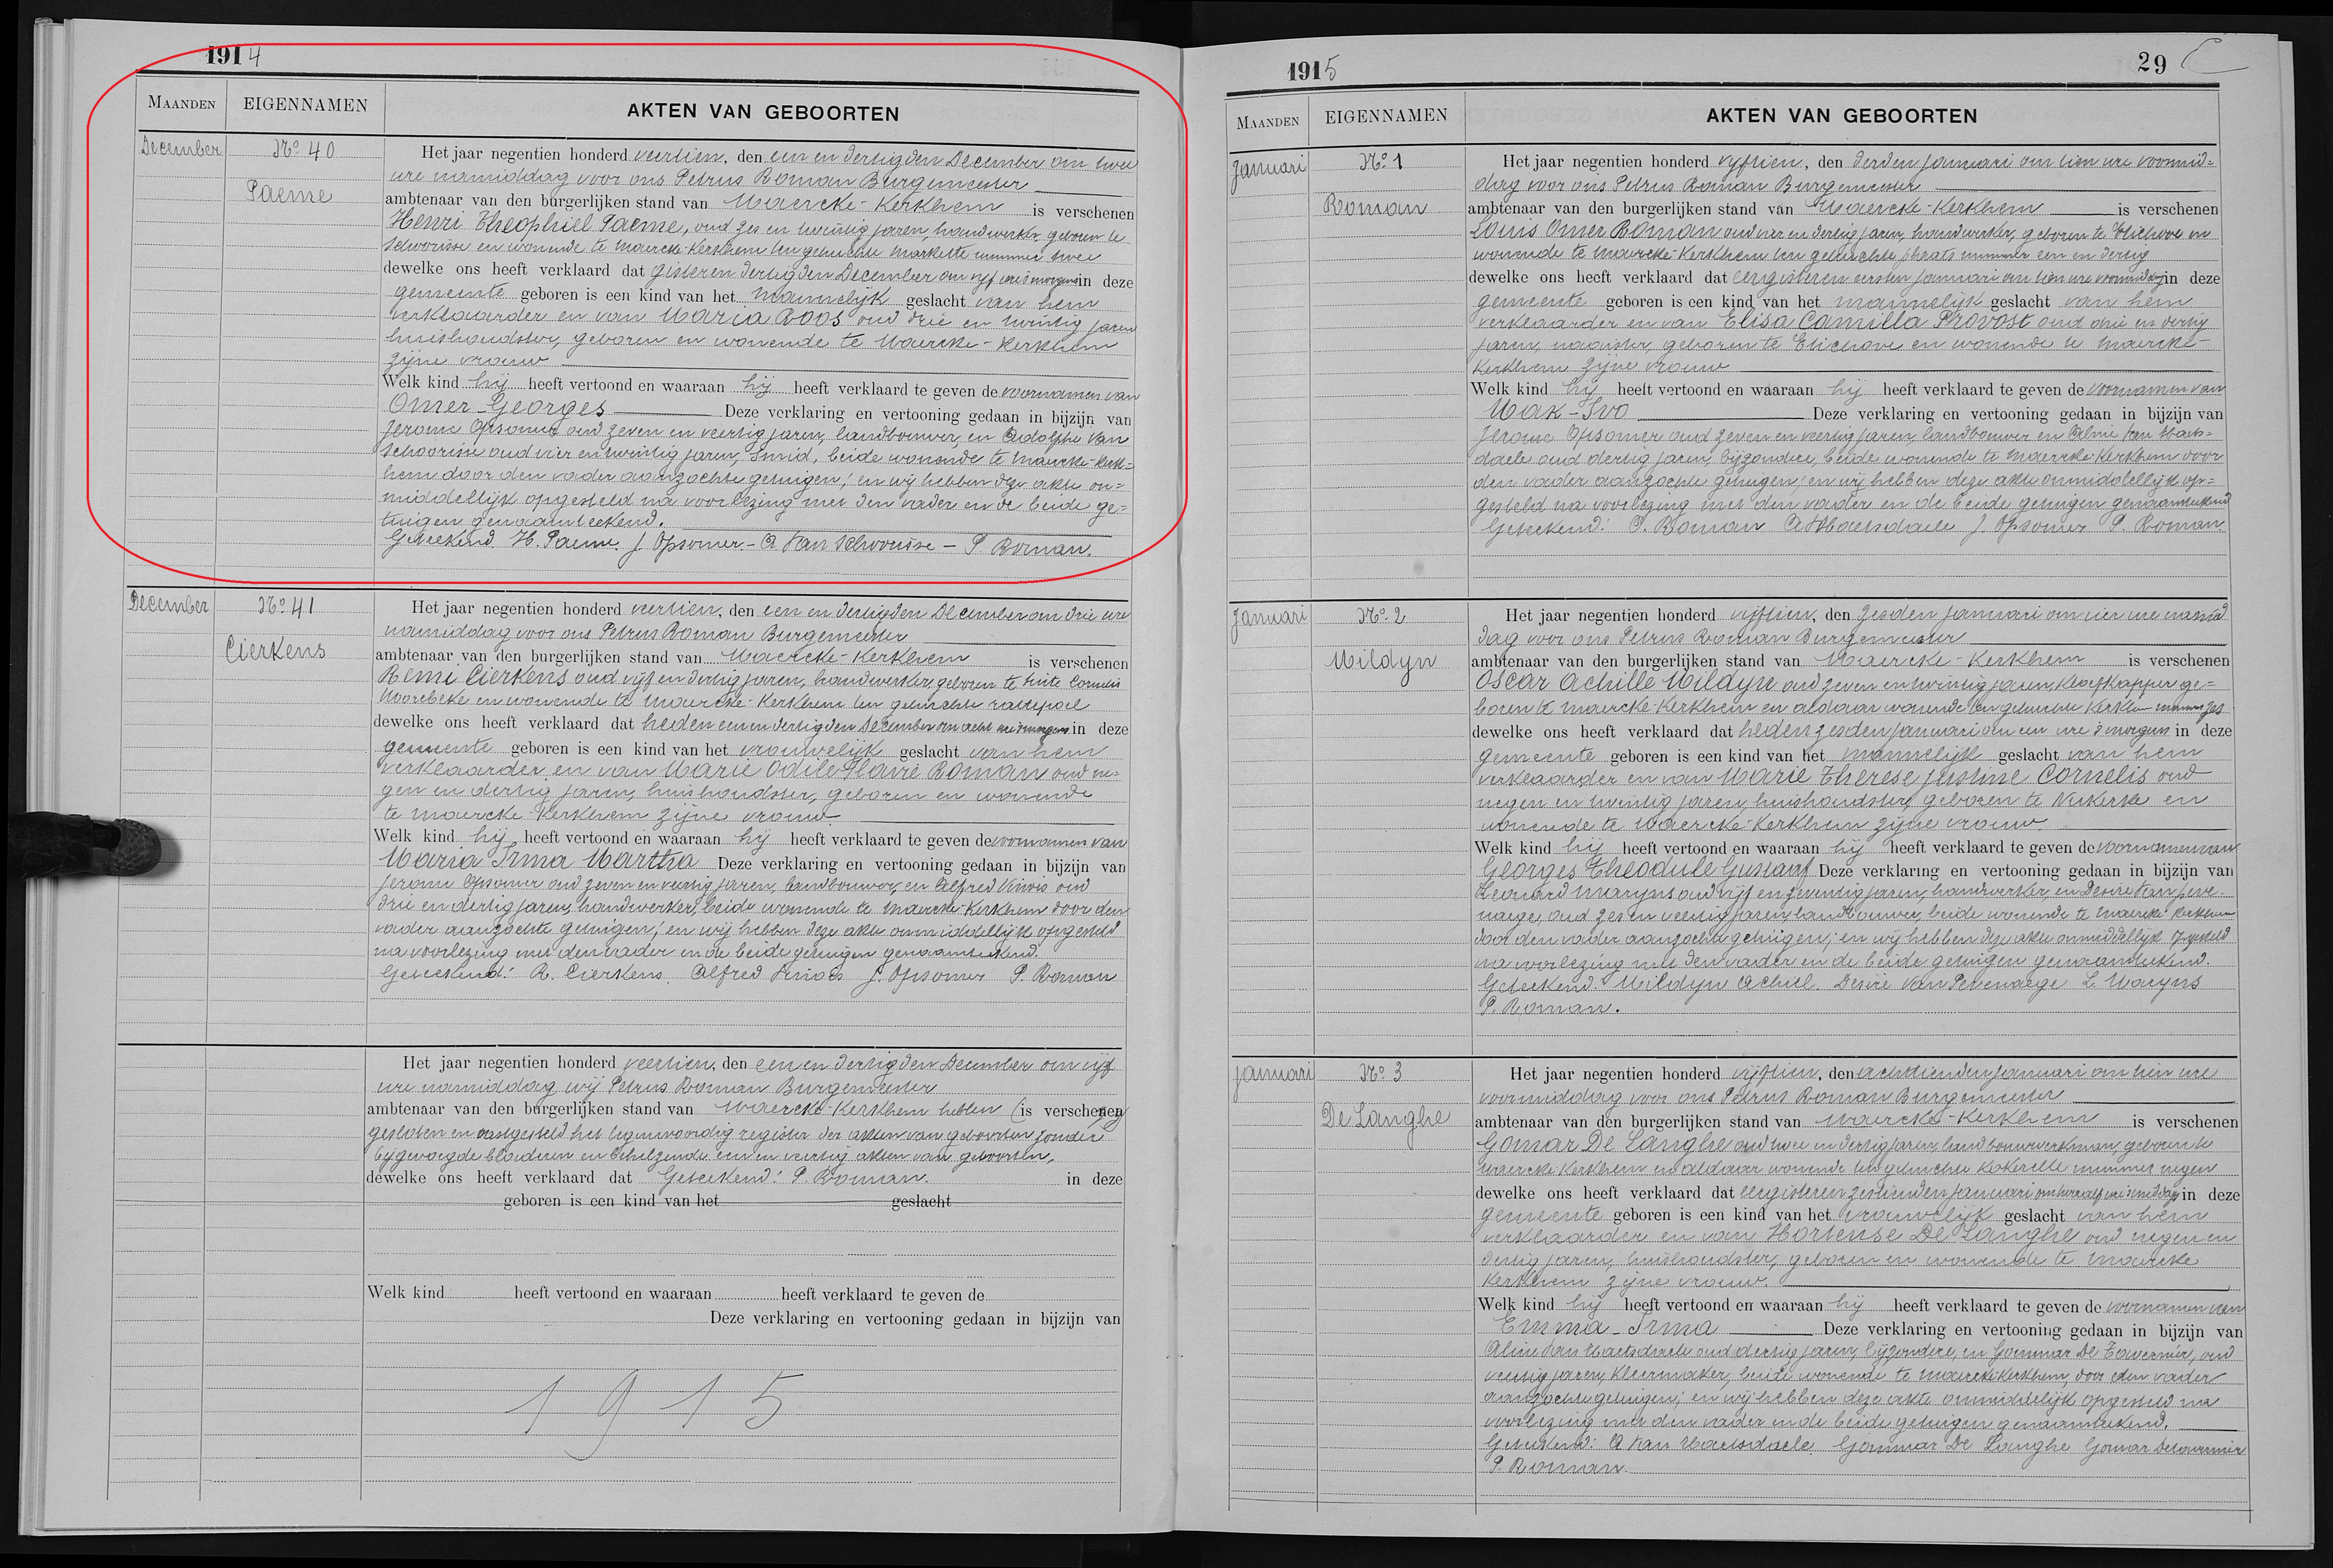 1914
MAANDEN EIGENNAMEN AKTEN VAN GEBOORTEN
December No 40 Het jaar negentien honderd veertien, den een en dertigden December om twee
ure namiddag voor ons Petrus Roman Burgemeester
Paeme ambtenaar van den burgerlijken stand van Maercke-Kerkhem is verschenen
Henri Theophiel Paeme, oud zes en twintig jaren, handwerker geboren te
Schoorisse en wonende te Maercke-Kerkhem ten gehuchte Markette nummer twee
dewelke ons heeft verklaard dat gisteren dertigden December om vijf ure 's morgens in deze
gemeente geboren is een kind van het mannelijk geslacht van hem
verklaarder en van Maria Roos oud drie en twintig jaren
huishoudster, geboren en wonende te Maercke-Kerkhem
zijne vrouw
Welk kind hij heeft vertoond en waaraan hij heeft verklaard te geven de voornamen van
Omer-Georges Deze verklaring en vertooning gedaan in bijzijn van
Jerome Opsomer oud zeven en veertig jaren, landbouwer, en Adolphe Van
Schoorisse oud vier en twintig jaren, smid, beide wonende te Maercke-Kerk=
hem door den vader aanzochte getuigen; en wij hebben deze akte on=
middellijk opgesteld na voorlezing met den vader en de beide ge=
tuigen genaamteekend.
Geteekend. H. Paeme. J. Opsomer - A Van Schoorisse - P. Roman.
December No 41 Het jaar negentien honderd veertien, den een en dertigden December om drie ure
namiddag voor ons Petrus Roman Burgemeester
Cierkens ambtenaar van den burgerlijken stand van Maercke-Kerkhem is verschenen
Remi Cierkens oud vijf en dertig jaren, handwerker, geboren te Sinte Cornelis
Hoorebeke en wonende te Maercke-Kerkhem ten gehuchte
dewelke ons heeft verklaard dat heden een en dertigden December om acht ure 's morgens in deze
gemeente geboren is een kind van het vrouwelijk geslacht van hem
verklaarder en van Marie Odile Flavie Roman oud ne=
gen en dertig jaren, huishoudster, geboren en wonende
te Maercke-Kerkhem zijne vrouw.
Welk kind hij heeft vertoond en waaraan hij heeft verklaard te geven de voornamen van
Maria Irma Martha Deze verklaring en vertooning gedaan in bijzijn van
Jerome Opsomer oud zeven en veertig jaren, landbouwer, en Alfred oud
drie en dertig jaren, handwerker, beide wonende te Maercke-Kerkhem door den
vader aanzochte getuigen; en wij hebben deze akte onmiddellijk opgesteld
na voorlezing met den vader en de beide getuigen genaamteekend.
Geteekend: R. Cierkens. Alfred J. Opsomer P. Roman
Het jaar negentien honderd veertien, den een en dertigden December om vijf
ure namiddag wij Petrus Roman Burgemeester
ambtenaar van den burgerlijken stand van Maercke-Kerkhem hebben (is verschenen)
gesloten en vastgesteld het tegenwoordig register der akten van geboorten zonder
bijgevoegde bladeren en behelzende een en veertig akten van geboorten.
dewelke ons heeft verklaard dat Geteekend: P. Roman. in deze
geboren is een kind van het geslacht
Welk kind heeft vertoond en waaraan heeft verklaard te geven de
Deze verklaring en vertooning gedaan in bijzijn van
1915
1915 29
MAANDEN EIGENNAMEN AKTEN VAN GEBOORTEN
Januari No 1 Het jaar negentien honderd vyftien, den derden Januari om tien ure voormid=
dag voor ons Petrus Roman Burgemeester
Roman ambtenaar van den burgerlijken stand van Maercke-Kerkhem is verschenen
Louis Omer Roman oud vier en dertig jaren, handwerker, geboren te Etichove en
wonende te Maercke-Kerkhem ten gehuchte nummer een en dertig
dewelke ons heeft verklaard dat eergisteren eersten Januari om tien ure voormiddag in deze
gemeente geboren is een kind van het mannelijk geslacht van hem
verklaarder en van Elisa Camilla Provost oud drie en dertig
jaren, naaister, geboren te Etichove en wonende te Maercke-
Kerkhem zijne vrouw
Welk kind hij heeft vertoond en waaraan hij heeft verklaard te geven de voornamen van
Mak-Ivo Deze verklaring en vertooning gedaan in bijzijn van
Jerome Opsomer oud zeven en veertig jaren, landbouwer en Van
daele oud dertig jaren, bijzondere, beide wonende te Maercke-Kerkhem door
den vader aanzochte getuigen; en wij hebben deze akte onmiddellijk op=
gesteld na voorlezing met den vader en de beide getuigen genaamteekend
Geteekend: O. Roman J. Opsomer P. Roman.
Januari No 2 Het jaar negentien honderd vijftien, den zesden Januari om vier ure namid
dag voor ons Petrus Roman Burgemeester
Mildyn ambtenaar van den burgerlijken stand van Maercke-Kerkhem is verschenen
Oscar Achille Mildyn oud zeven en twintig jaren, ge=
boren te Maercke-Kerkhem en aldaar wonende ten gehuchte Kerkhem nummer zes
dewelke ons heeft verklaard dat heden zesden Januari om een ure 's morgens in deze
gemeente geboren is een kind van het mannelijk geslacht van hem
verklaarder en van Marie Therese Justine Cornelis oud
negen en twintig jaren, huishoudster, geboren te Nukerke en
wonende te Maercke-Kerkhem zijne vrouw.
Welk kind hij heeft vertoond en waaraan hij heeft verklaard te geven de voornamen van
Georges Theodule Gustaaf Deze verklaring en vertooning gedaan in bijzijn van
Leonard Maryns oud vijf en zeventig jaren, handwerker, en Desiré Van Peve=
naege, oud zes en veertig jaren, landbouwer, beide wonende te Maercke Kerkhem
door den vader aanzochte getuigen; en wij hebben deze akte onmiddellijk opgesteld
na voorlezing met den vader en de beide getuigen genaamteekend.
Geteekend: Mildyn Achiel Desiré Van Pevenaege L. Maryns
P. Roman.
Januari No 3 Het jaar negentien honderd vijftien, den achttienden Januari om tien ure
voormiddag voor ons Petrus Roman Burgemeester
De Langhe ambtenaar van den burgerlijken stand van Maercke-Kerkhem is verschenen
Gomar De Langhe oud twee en dertig jaren, landbouwwerkman, geboren te
Maercke-Kerkhem en aldaar wonende ten gehuchte nummer negen
dewelke ons heeft verklaard dat eergisteren zestienden Januari om twaalf ure 's middags in deze
gemeente geboren is een kind van het vrouwelijk geslacht van hem
verklaarder en van Hortense De Langhe oud negen en
dertig jaren, huishoudster, geboren en wonende te Maercke
Kerkhem zijne vrouw.
Welk kind hij heeft vertoond en waaraan hij heeft verklaard te geven de voornamen van
Emma-Irma Deze verklaring en vertooning gedaan in bijzijn van
oud dertig jaren, bijzondere, en Gommar De Tavernier, oud
veertig jaren, kleermaker, beide wonende te Maercke-Kerkhem, door den vader
aanzochte getuigen; en wij hebben deze akte onmiddellijk opgesteld na
voorlezing met den vader en de beide getuigen genaamteekend.
Geteekend: A Van Gommar De Langhe Gomar Detavernier
P. Roman.